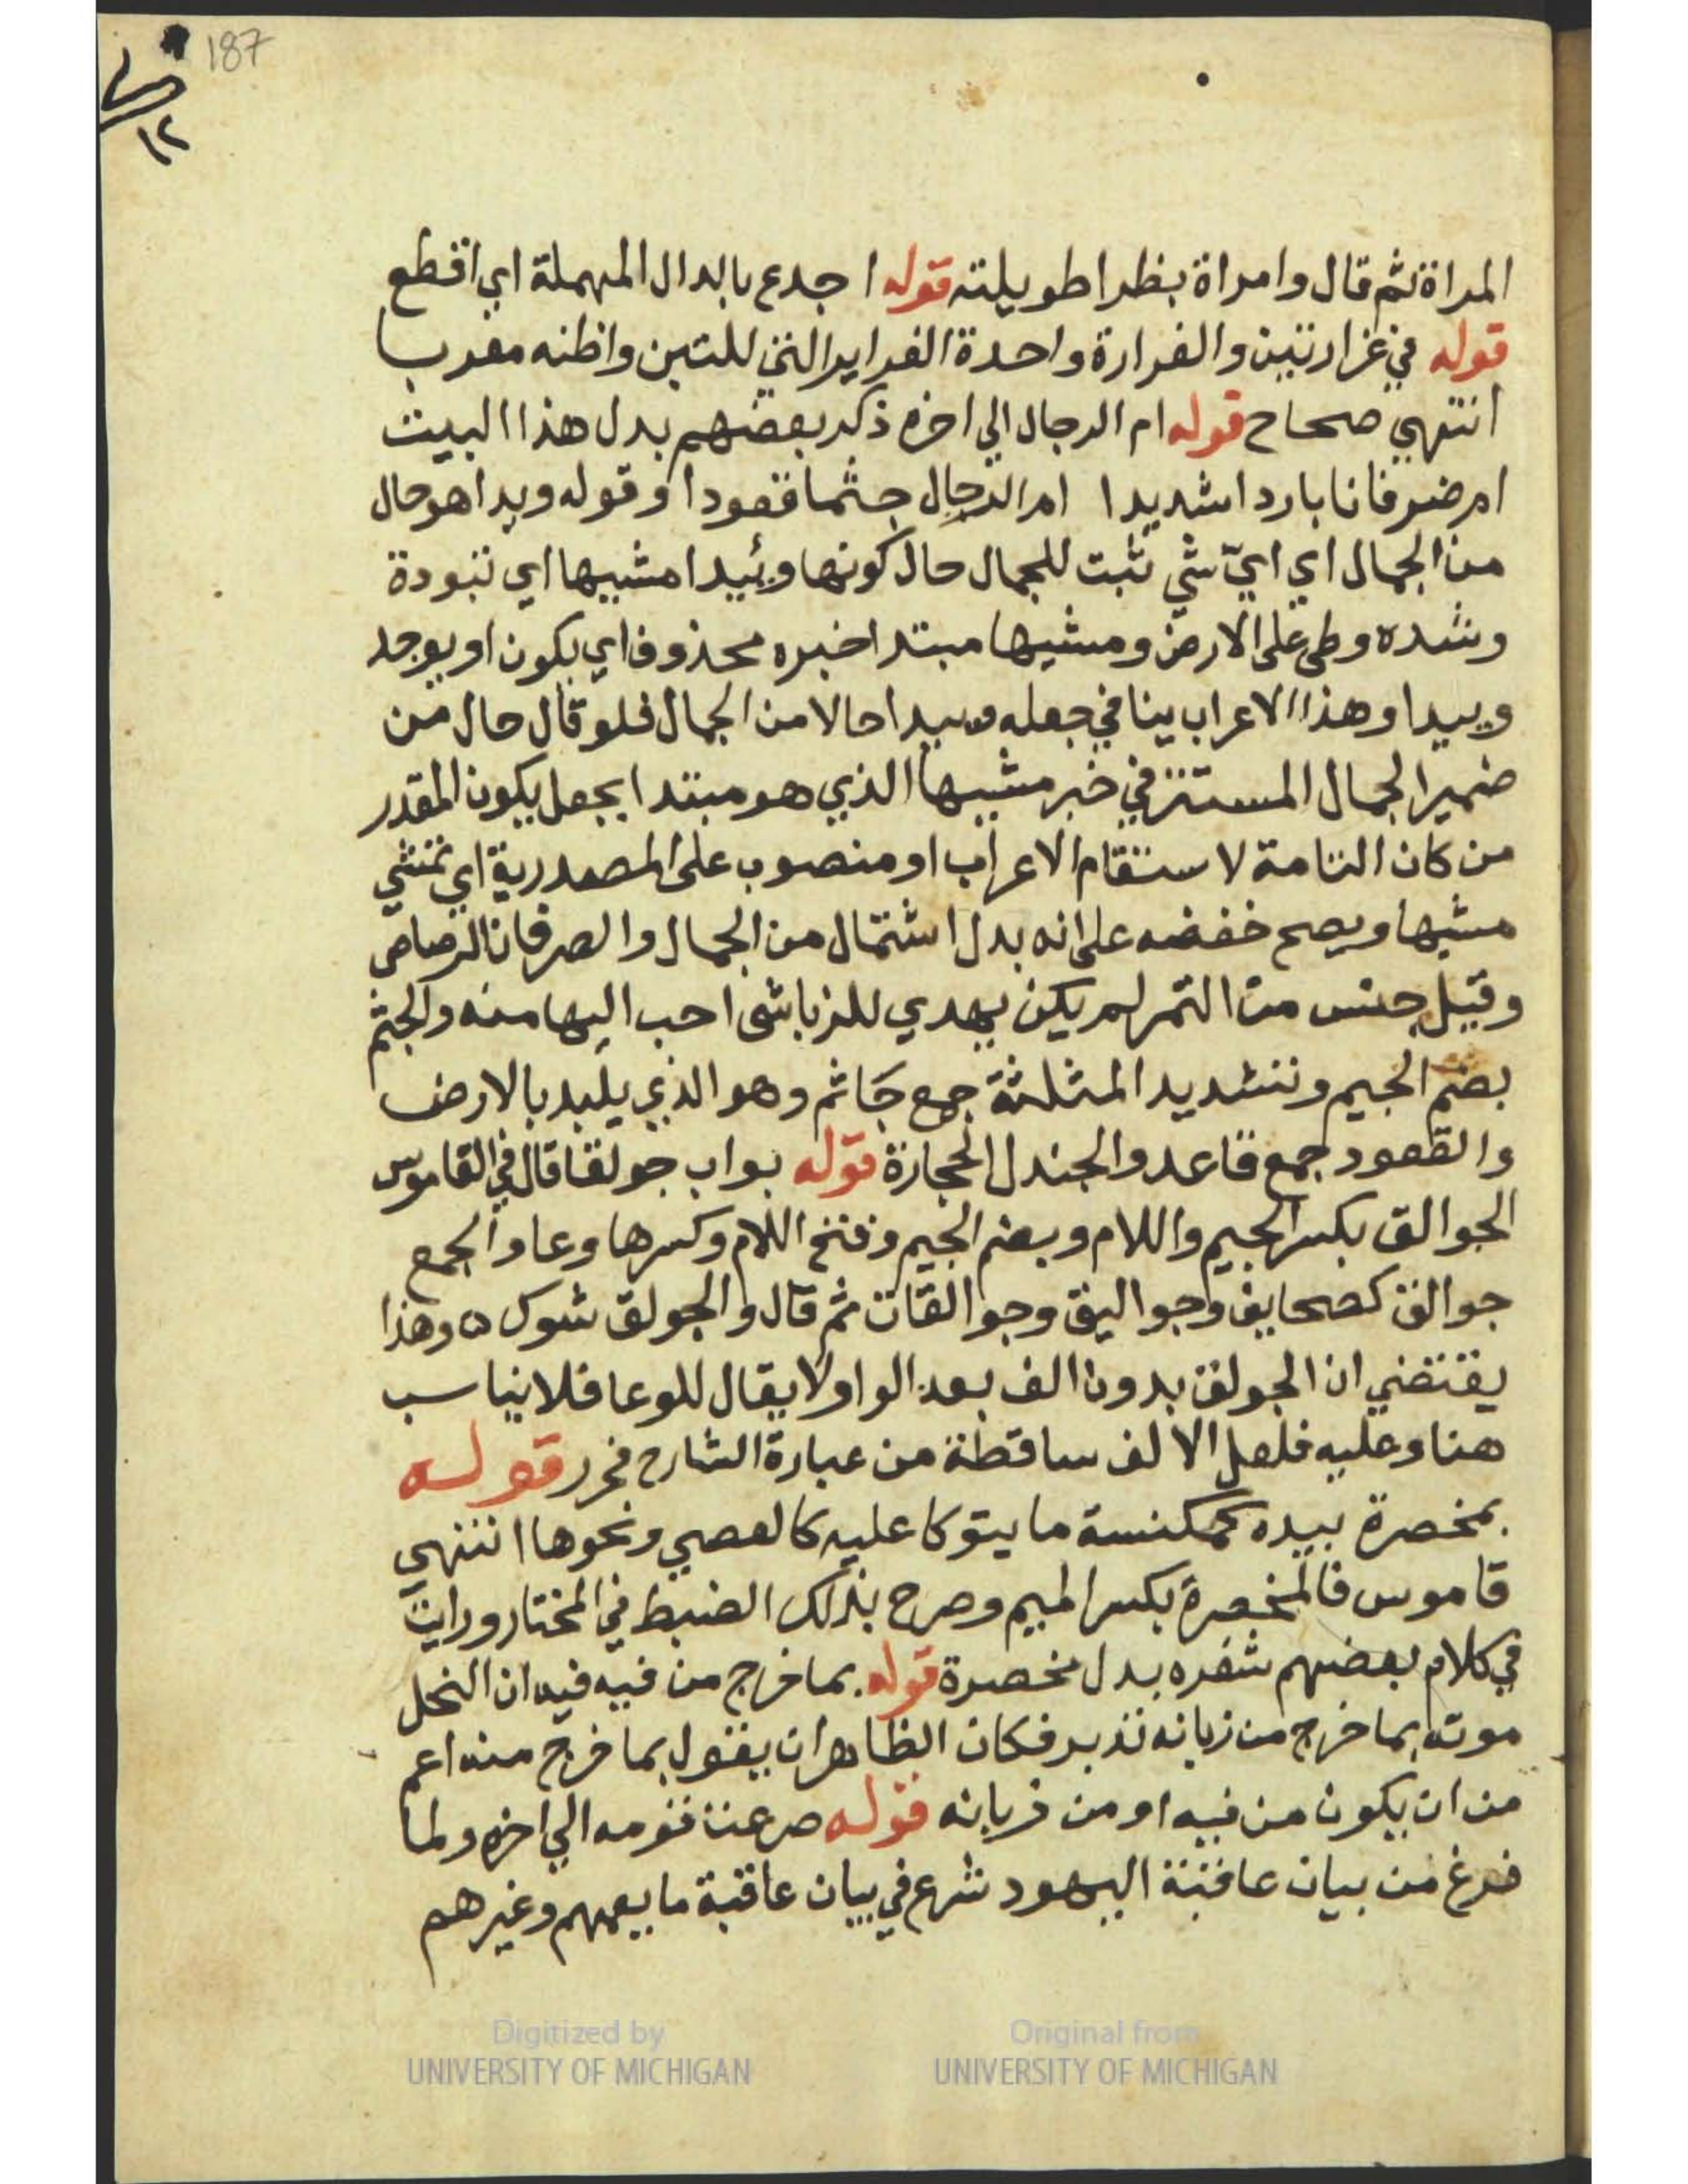 187
١٢
المراة ثم قال وامراة بظرا طويلته قوله اجدع بالدال المهملة اي اقطع
قوله في غرارتين والغرارة واحدة الغراير التي للتبن واظنه معربا
انتهي صحاح قوله ام الرجال الي اخره ذكر بعضهم بدل هذا البيت
ام صرفانا باردا شديدا ام الرجال جثما قعودا وقوله ويدا هو حال
من الجمال اي ايّ شي ثبت للجمال حال كونها وئيدا مشيها اي بتودة
وشده وطي علي الارض ومشيها مبتدا خبره محذوف اي يكون او يوجد
وييدا وهذا الاعراب ينافي جعله وييدا حالا من الجمال فلو قال حال من
ضمير الجمال المستتر في خبر مشيها الذي هو مبتدا بجعل يكون المقدر
من كان التامة لاستقام الاعراب او منصوب على المصدرية اي تمشي
مشيها ويصح خفضه على انه بدل اشتمال من الجمال والصرفان الرصاص
وقيل جنس من التمر لم يكن يهدي للزبا شي احب اليها منه والجثم
بضم الجيم وتشديد المثلثة جمع جَاثم وهو الذي يلبد بالارض
والقعود جمع قاعد والجندل الحجارة قوله بواب جولقا قال في القاموس
الجوالق بكسر الجيم واللام وبضم الجيم وفتح اللام وكسرها وعا والجمع
جوالق كصحايف وجواليق وجوالقات ثم قال والجولق شوك ه وهذا
يقتضي ان الجولق بدون الف بعد الواو لا يقال للوعا فلا يناسب
هنا وعليه فلعل الالف ساقطة من عبارة الشارح فحرر قوله
بمخصرة بيده كمكنسة ما يتوكا عليه كالعصي ونحوها انتهي
قاموس فالمخصرة بكسر الميم وصرح بذلك الضبط في المختار ورايت
في كلام بعضهم شفره بدل مخصرة قوله بما خرج من فيه فيه ان النحل
موته بما خرج من زبانه تدبر فكان الظاهر ان يقول بما خرج منه اعم
من ان يكون من فيه او من زبانه قوله صرعت قومه الي اخره ولما
فرغ من بيان عاقبة اليهود شرع في بيان عاقبة ما يعمهم وغيرهم
Digitized by
UNIVERSITY OF MICHIGAN
Original from
UNIVERSITY OF MICHIGAN